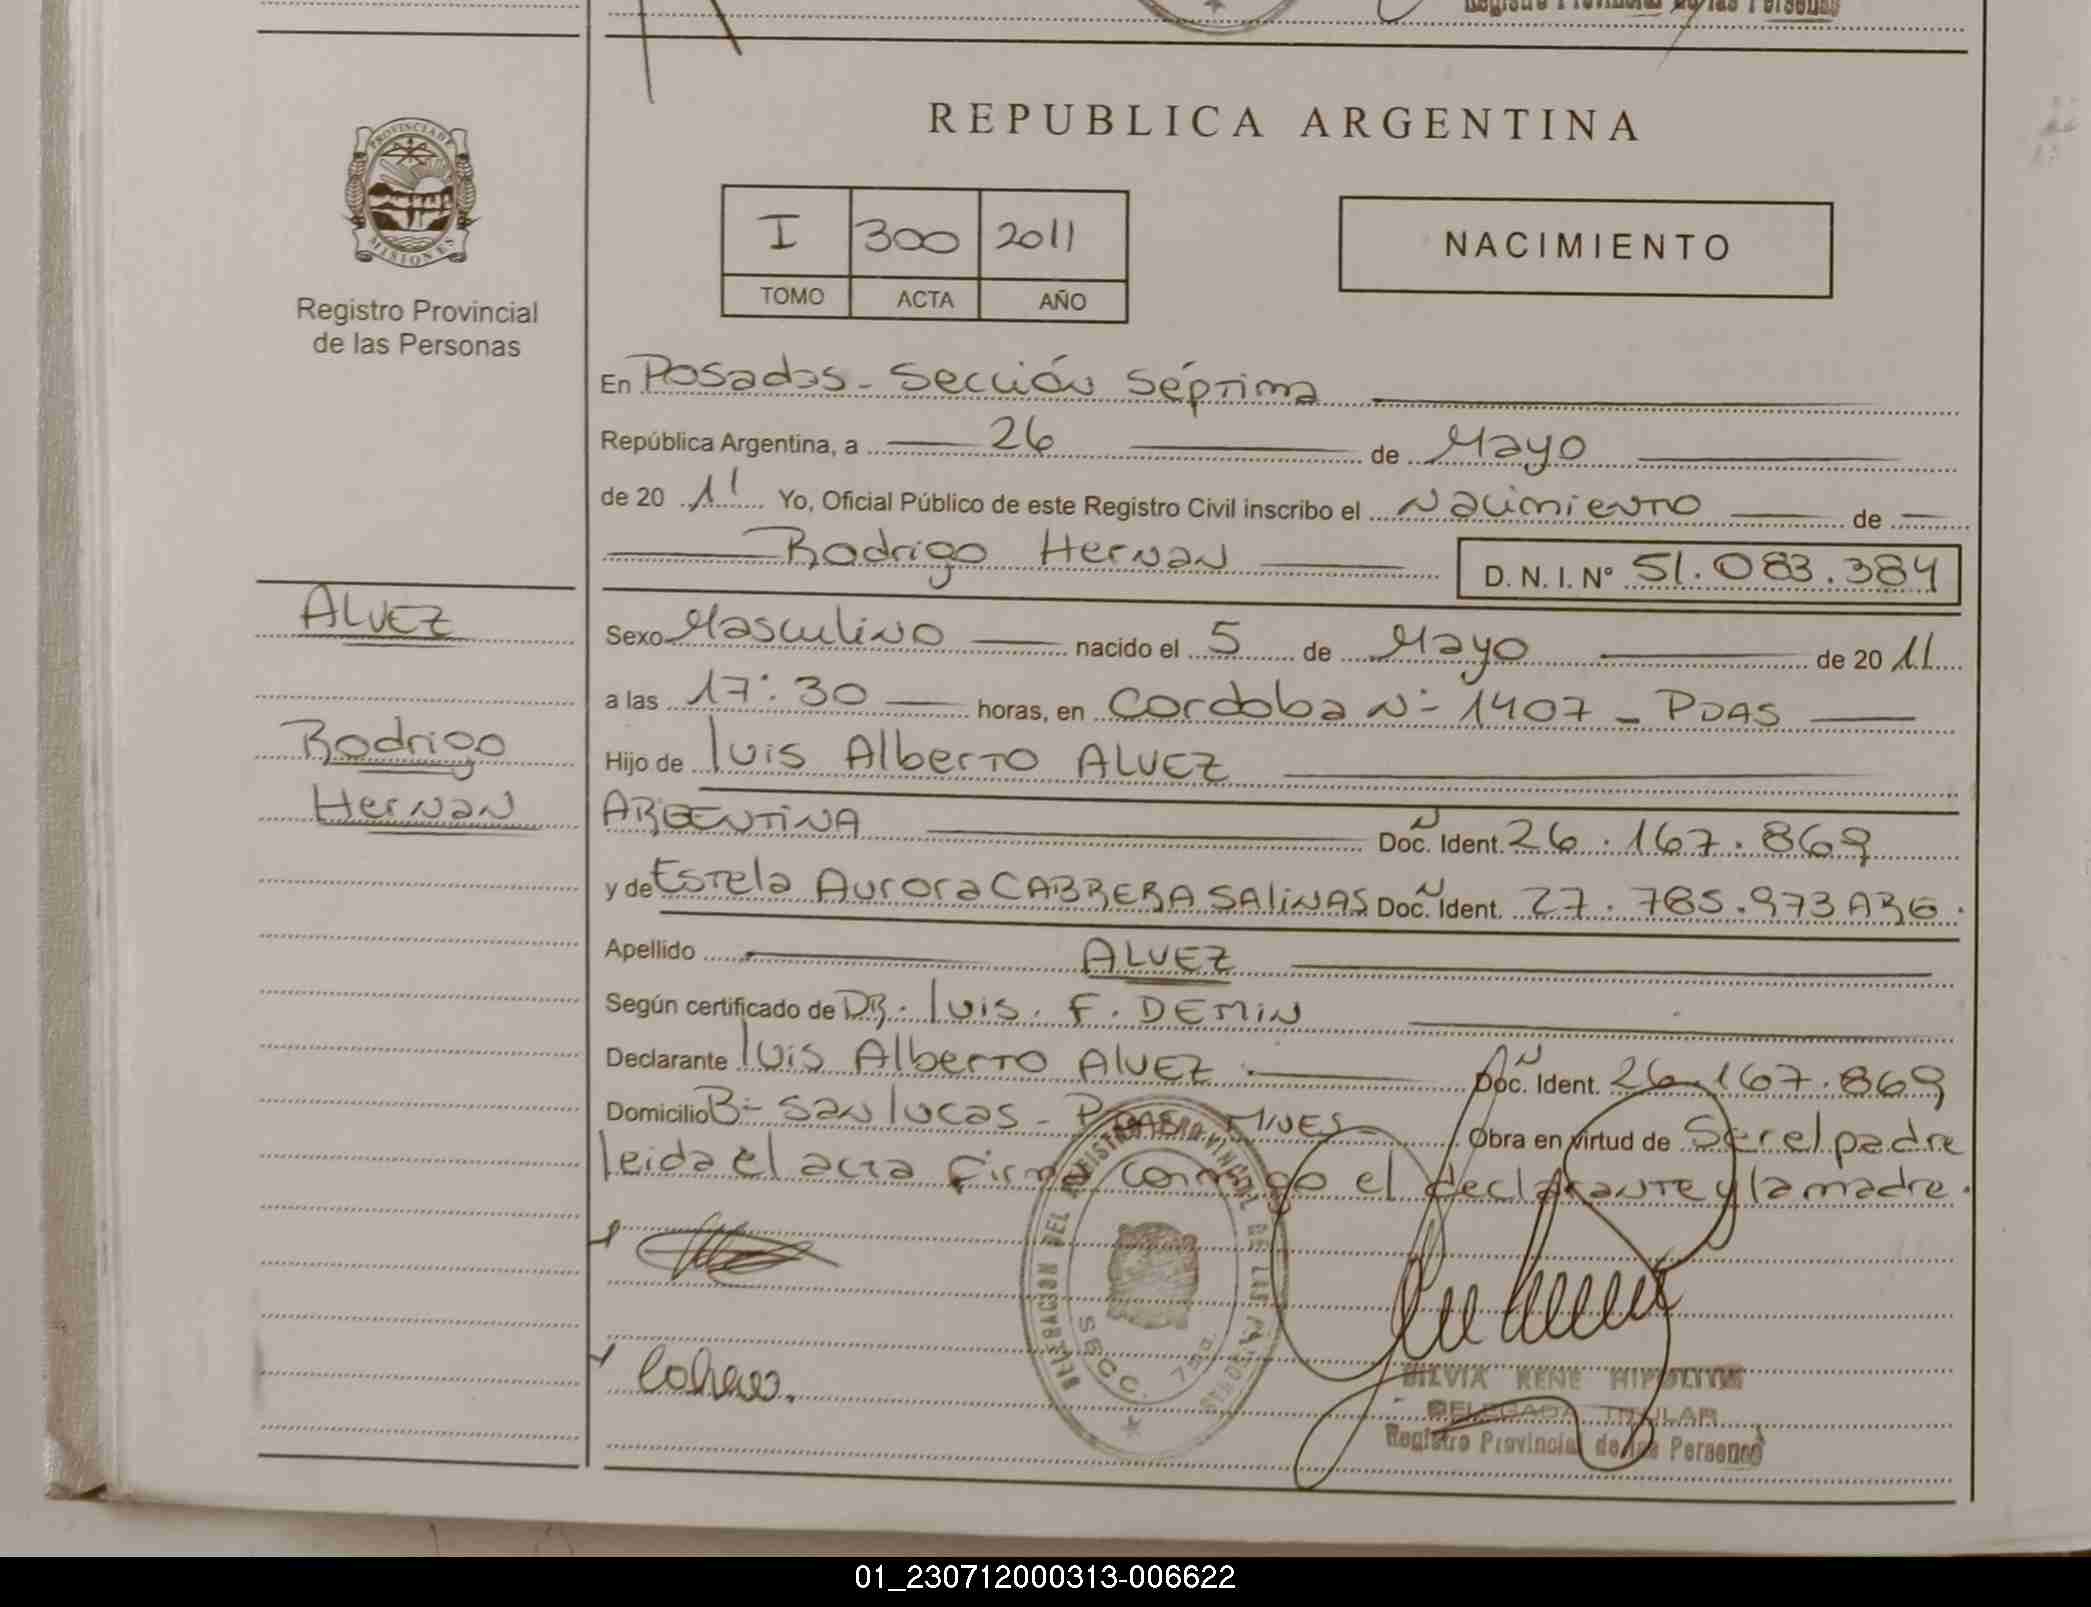 Registro Provincial de las Personas
REPUBLICA ARGENTINA
PROVINCIA DE
MISIONES
Registro Provincial
de las Personas
I 300 2011
TOMO ACTA AÑO
NACIMIENTO
En Posadas - Sección Séptima
República Argentina, a 26 de Mayo
de 20 11 Yo, Oficial Público de este Registro Civil inscribo el Nacimiento de
Rodrigo Hernan D. N. I. N° 51.083.384
ALVEZ
Rodrigo
Hernan
Sexo Masculino nacido el 5 de Mayo de 20 11
a las 17:30 horas, en Cordoba N- 1407 - PDAS
Hijo de Luis Alberto ALVEZ
ARGENTINA Doc. Ident. 26.167.869
y de Estela Aurora CABRERA SALINAS Doc. Ident. 27.785.973 ARG.
Apellido ALVEZ
Según certificado de DR. Luis. F. DEMIN
Declarante Luis Alberto ALVEZ Doc. Ident. 26.167.869
Domicilio B- San Lucas - PDAS MNES Obra en virtud de Ser el padre
leida el acta firma conmigo el declarante y la madre.
DELEGACION DEL REGISTRO PROVINCIAL DE LAS PERSONAS
SECC. 7ma.
SILVIA RENE HIPOLITO
DELEGADA TITULAR
Registro Provincial de las Personas
01_230712000313-006622